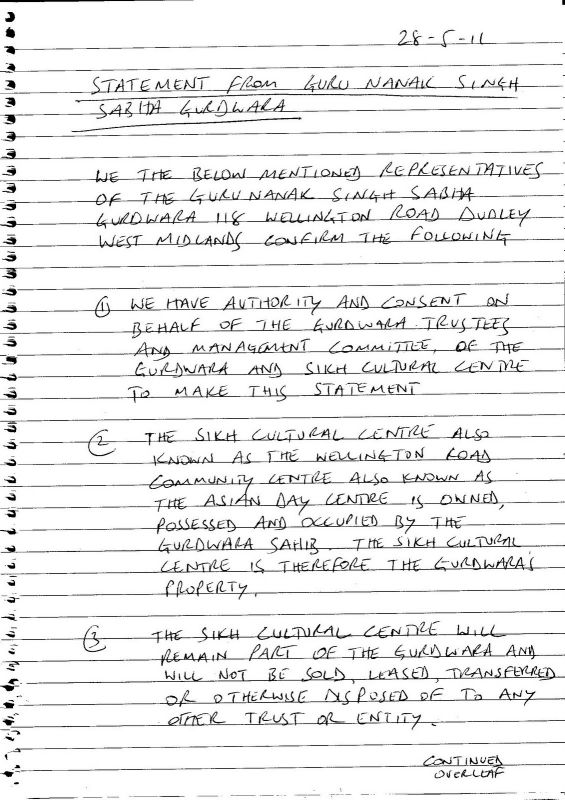 28-5-11
STATEMENT FROM GURU NANAK SINGH
SABHA GURDWARA
WE THE BELOW MENTIONED REPRESENTATIVES
OF THE GURU NANAK SINGH SABHA
GURDWARA 118 WELLINGTON ROAD DUDLEY
WEST MIDLANDS CONFIRM THE FOLLOWING
① WE HAVE AUTHORITY AND CONSENT ON
BEHALF OF THE GURDWARA TRUSTEES
AND MANAGEMENT COMMITTEE, OF THE
GURDWARA AND SIKH CULTURAL CENTRE
TO MAKE THIS STATEMENT
② THE SIKH CULTURAL CENTRE ALSO
KNOWN AS THE WELLINGTON ROAD
COMMUNITY CENTRE ALSO KNOWN AS
THE ASIAN DAY CENTRE IS OWNED,
POSSESSED AND OCCUPIED BY THE
GURDWARA SAHIB. THE SIKH CULTURAL
CENTRE IS THEREFORE THE GURDWARA'S
PROPERTY.
③ THE SIKH CULTURAL CENTRE WILL
REMAIN PART OF THE GURDWARA AND
WILL NOT BE SOLD, LEASED, TRANSFERRED
OR OTHERWISE DISPOSED OF TO ANY
OTHER TRUST OR ENTITY.
CONTINUED
OVERLEAF